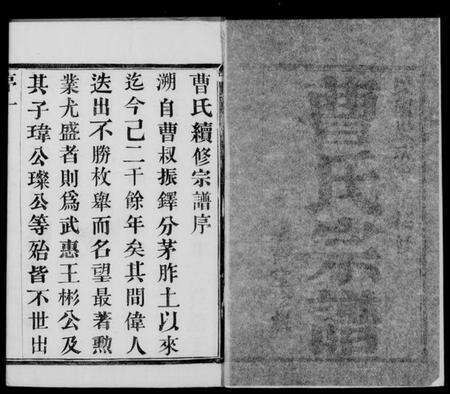 曹氏宗譜
曹氏續修宗譜序
溯自曹叔振鐸分茅胙土以來
迄今己二千餘年矣其間偉人
迭出不勝枚舉而名望最著勲
業尤盛者則爲武惠王彬公及
其子瑋公璨公等殆皆不世出
序一